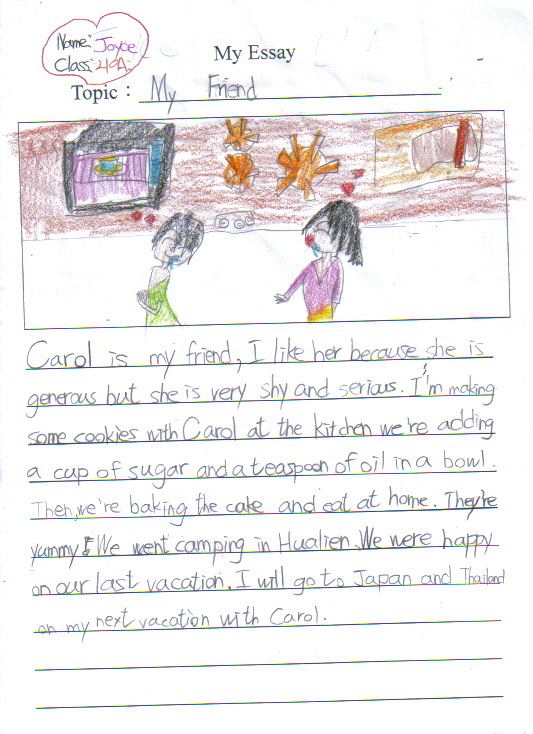 Name: Joyce
Class: 210A.
My Essay
Topic : My Friend
Carol is my friend, I like her because she is
generous but she is very shy and serious. I'm making
some cookies with Carol at the kitchen we're adding
a cup of sugar and a teaspoon of oil in a bowl.
Then, we're baking the cake and eat at home. They're
yummy! We went camping in Hualien. We were happy
on our last vacation. I will go to Japan and Thailand
on my next vacation with Carol.